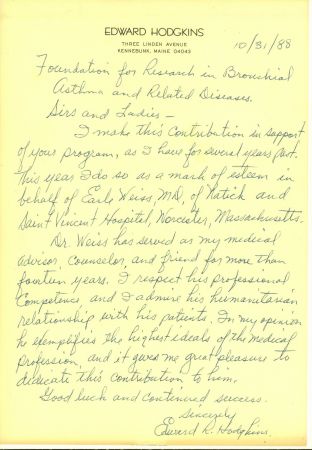 EDWARD HODGKINS
THREE LINDEN AVENUE
KENNEBUNK, MAINE 04043
10/31/88
Foundation for Research in Bronchial
Asthma and Related Diseases.
Sirs and Ladies –
I make this Contribution in support
of your program, as I have for several years past.
This year I do so as a mark of esteem in
behalf of Earle Weiss, MD, of Natick and
Saint Vincent Hospital, Worcester, Massachusetts.
Dr. Weiss has served as my medical
advisor, counselor, and friend for more than
fourteen years. I respect his professional
Competence, and I admire his humanitarian
relationship with his patients. In my opinion
he exemplifies the highest ideals of the medical
profession, and it gives me great pleasure to
dedicate this contribution to him.
Good luck and continued success.
Sincerely
Edward R. Hodgkins